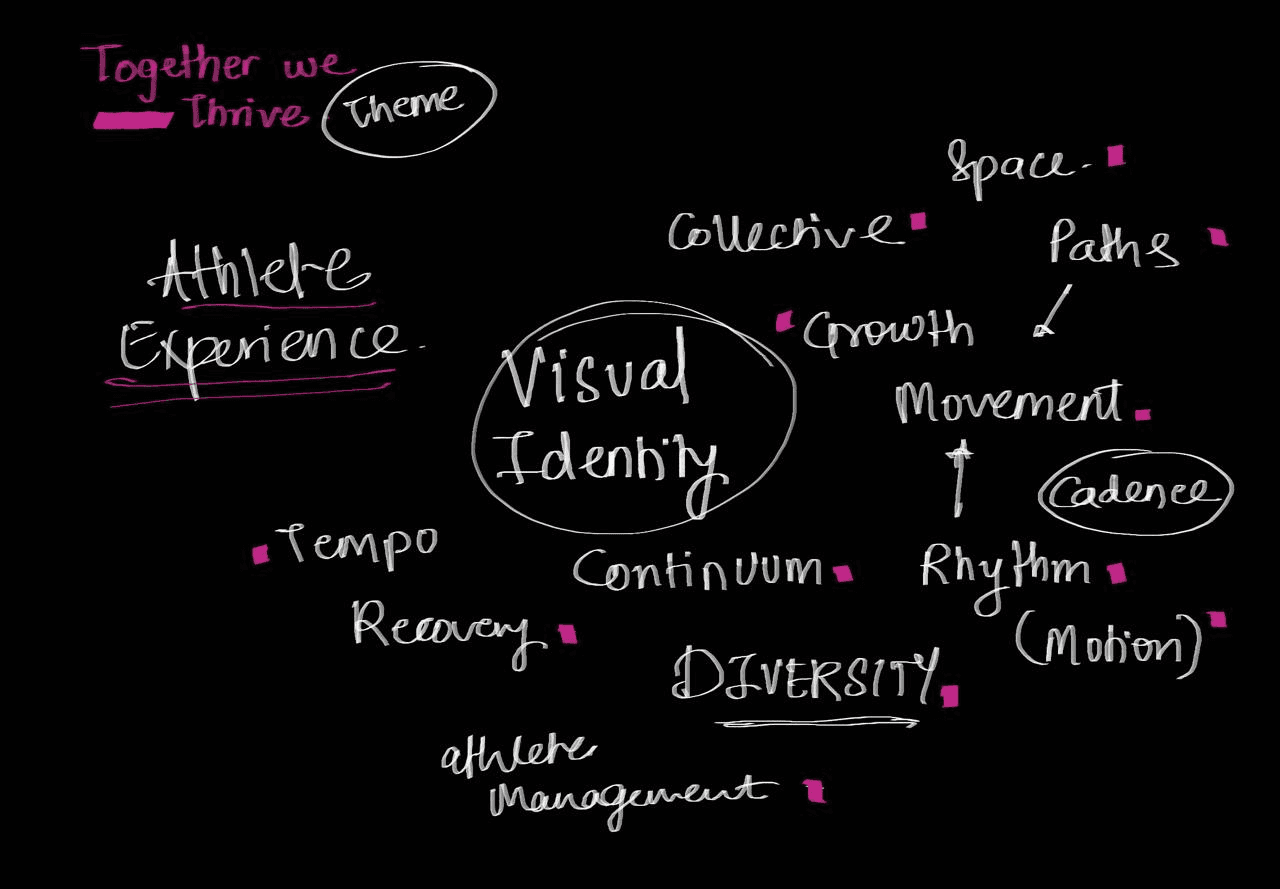 Together we
Thrive
Theme
Space.
Collective
Paths
Athlete
Experience.
Growth
Visual
Identity
Movement
Cadence
Tempo
Continuum
Rhythm
(Motion)
Recovery
DIVERSITY
athlete
Management